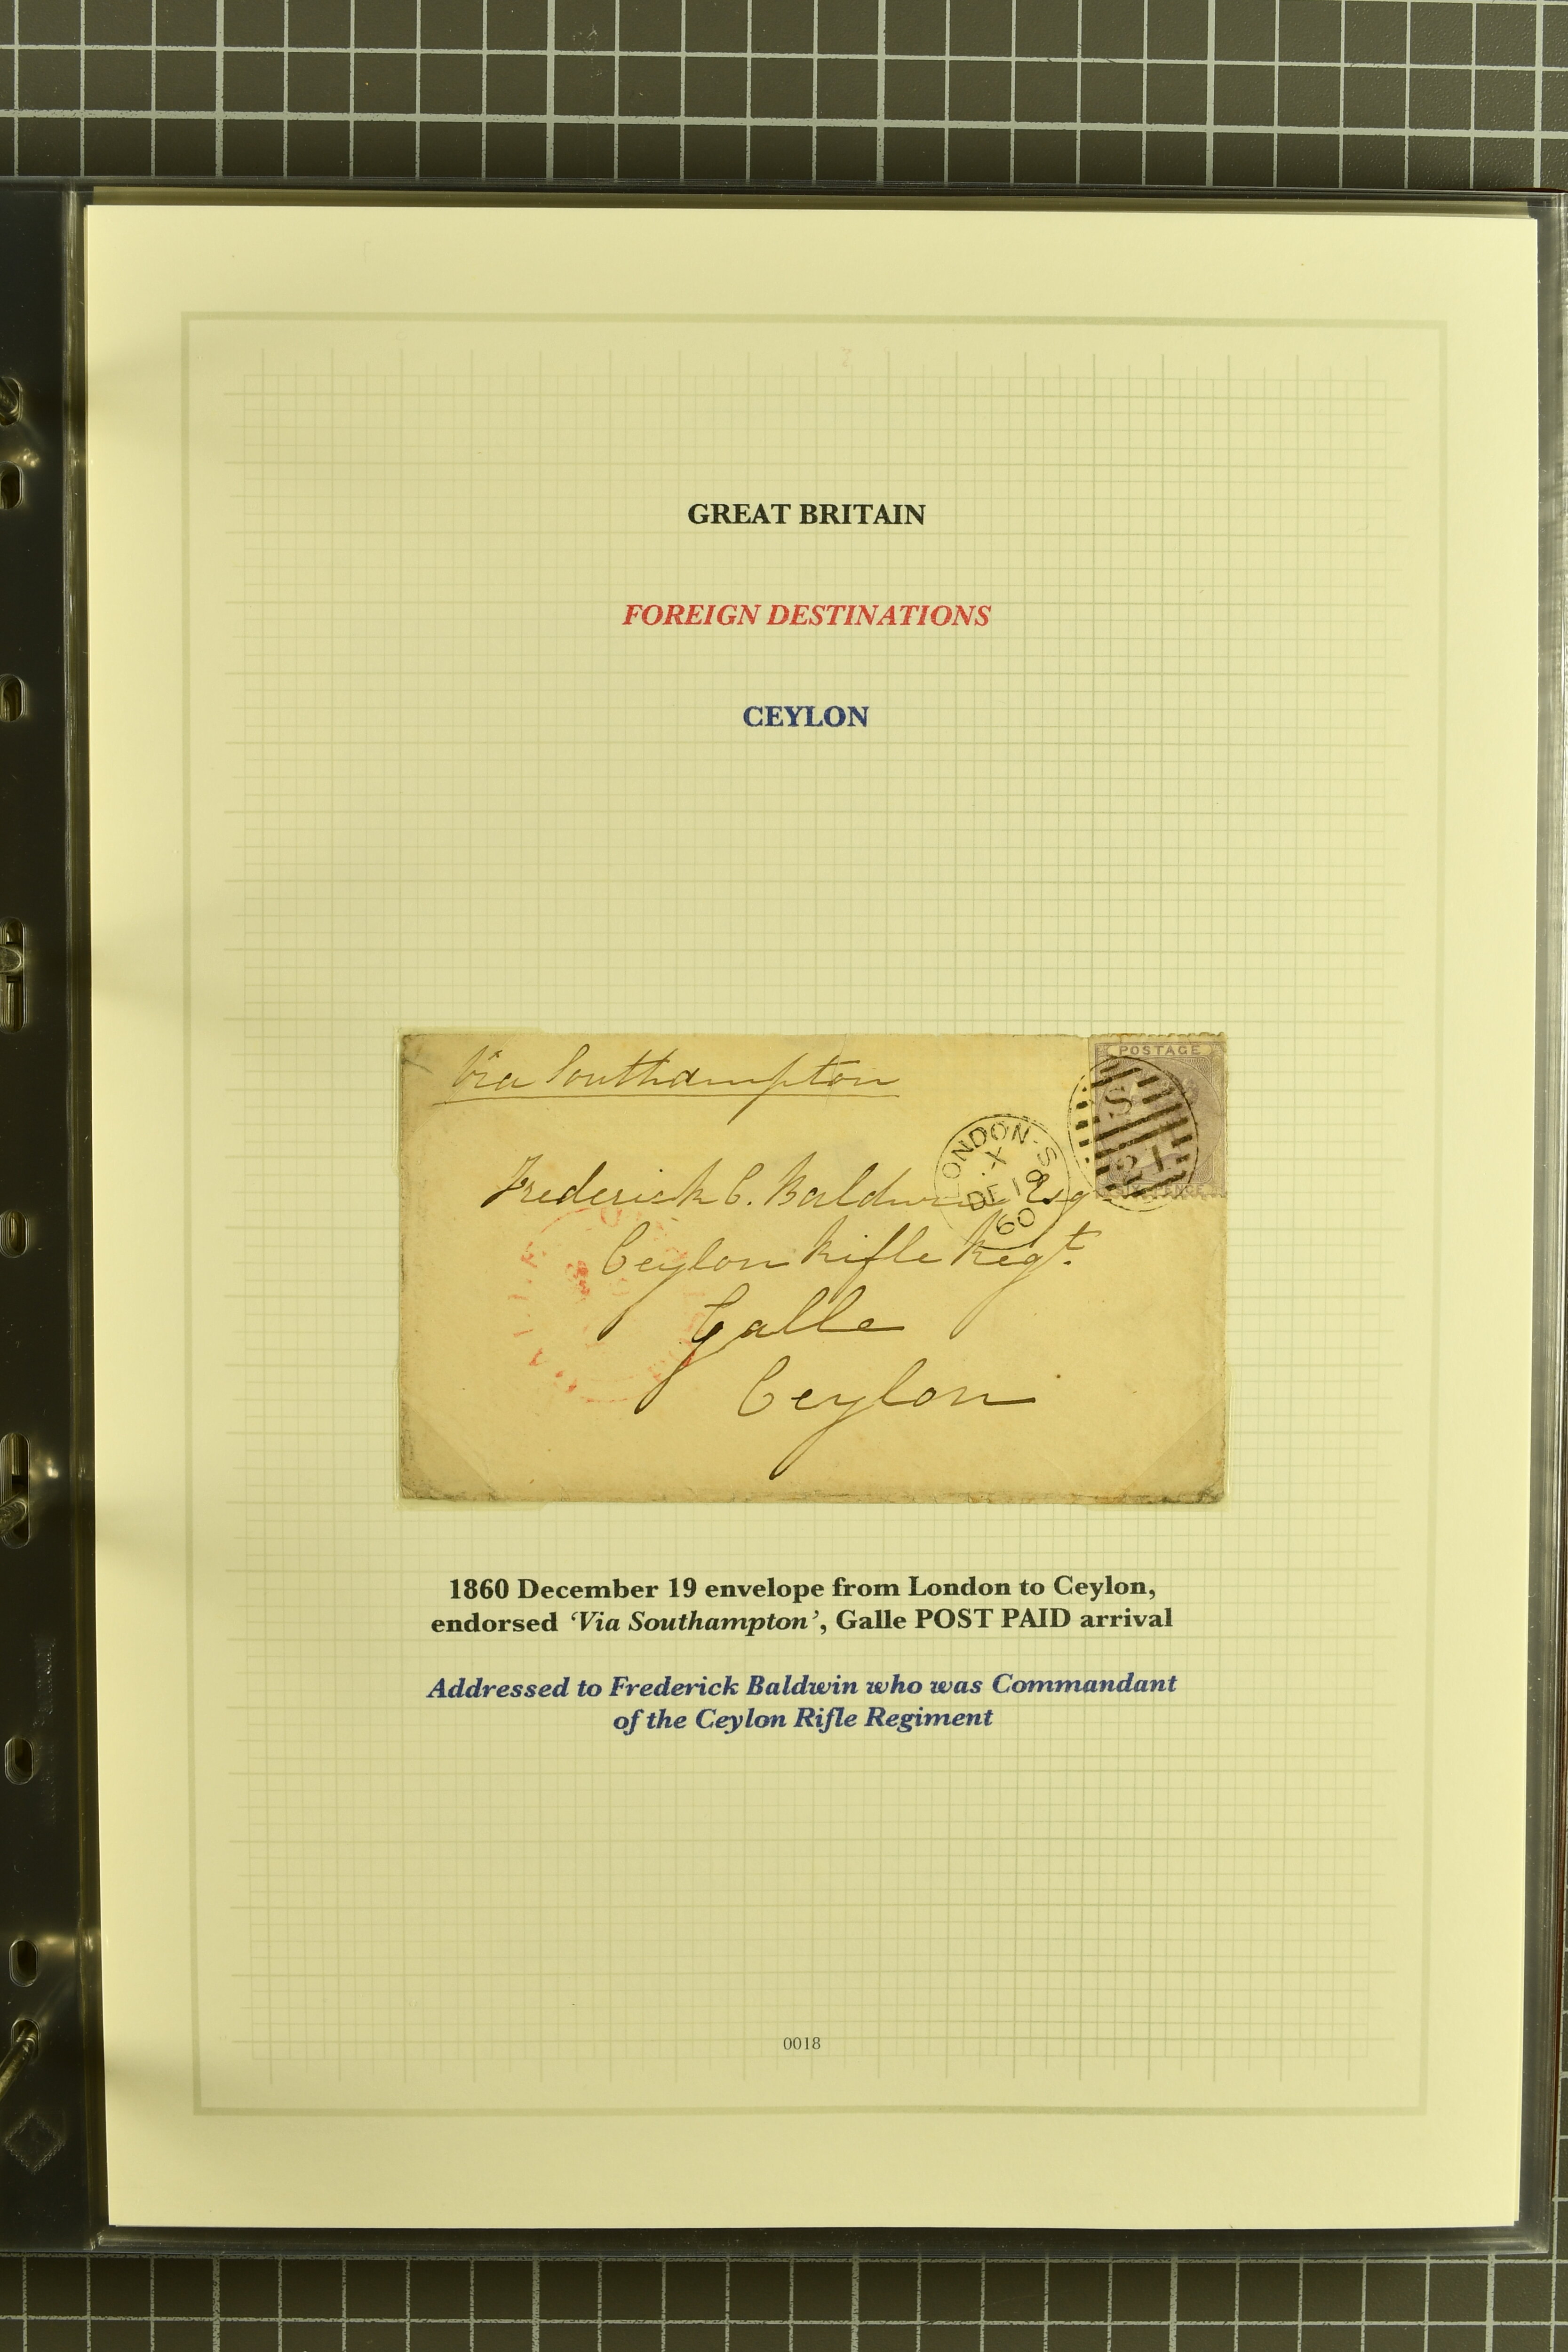 GREAT BRITAIN
FOREIGN DESTINATIONS
CEYLON
Via Southampton
POSTAGE
S
21
LONDON·S
X
DE 19
60
Frederick C. Baldwin Esq
Ceylon Rifle Regt.
Galle
Ceylon
1860 December 19 envelope from London to Ceylon,
endorsed ‘Via Southampton’, Galle POST PAID arrival
Addressed to Frederick Baldwin who was Commandant
of the Ceylon Rifle Regiment
0018